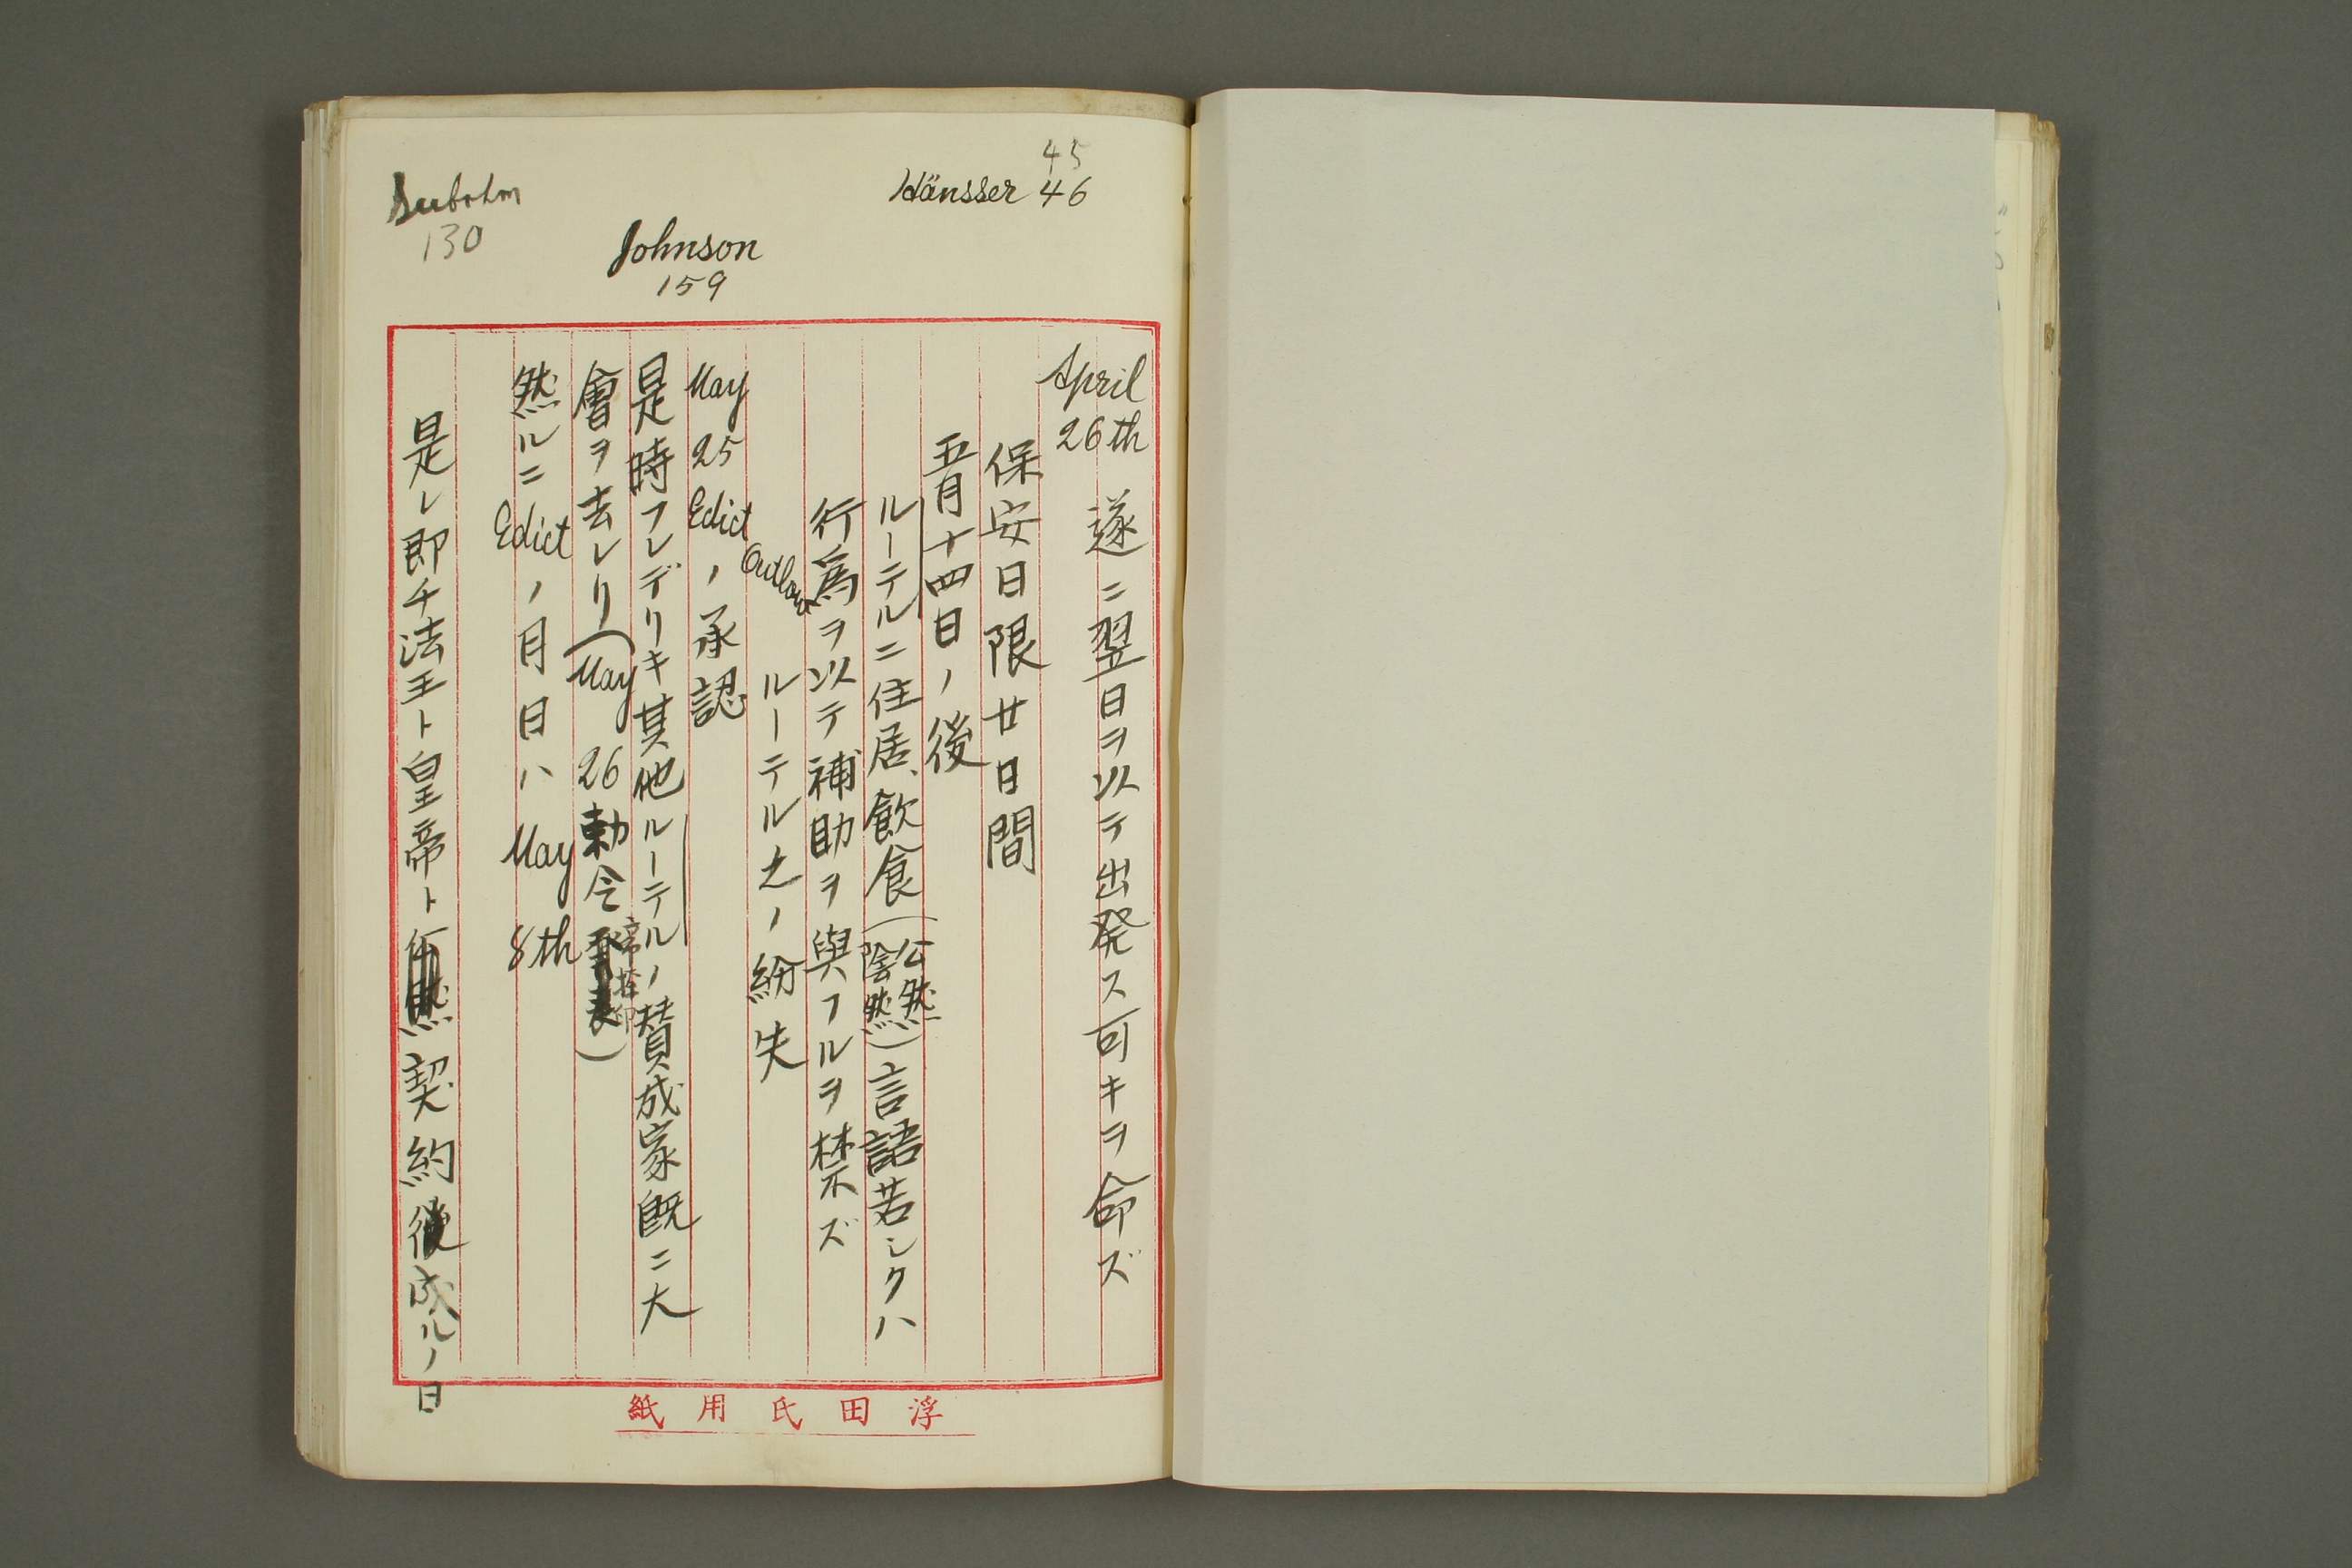 45
Hänsser 46
Johnson
159
130
April
26th
遂ニ翌日ヲ以テ出発ス可キヲ命ズ
保安日限廿日間
五月十四日ノ後
ルーテルニ住居、飲食(公然陰然)言語若シクハ
行爲ヲ以テ補助ヲ與フルヲ禁ズ
Outlaw
ルーテル之ノ紛失
May 25 Edictノ承認
是時フレデリキ其他ルーテルノ賛成家既ニ大
會ヲ去レリ(May 26 勅令
)
然ルニEdictノ月日ハMay 8th
是レ即チ法王ト皇帝ト
契約
成ルノ日
浮田氏用紙